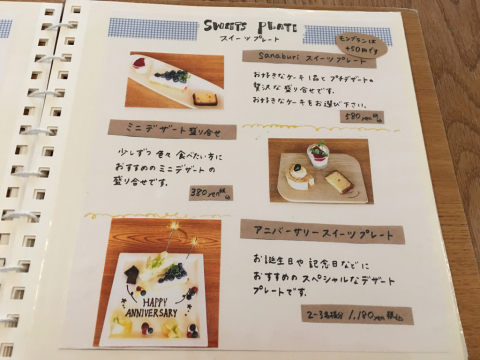 SWEETS PLATE
スイーツプレート
モンブランは
+50円です
Sanaburi スイーツプレート
お好きなケーキ1品とプチデザートの
贅沢な盛り合せです。
お好きなケーキをお選び下さい。
580yen税込
ミニデザート盛り合せ
少しずつ色々食べたい方に
おすすめのミニデザートの
盛り合せです。
380yen税込
アニバーサリースイーツプレート
お誕生日や記念日などに
おすすめのスペシャルなデザート
プレートです。
2-3名様分 1,180yen税込
HAPPY
ANNIVERSARY